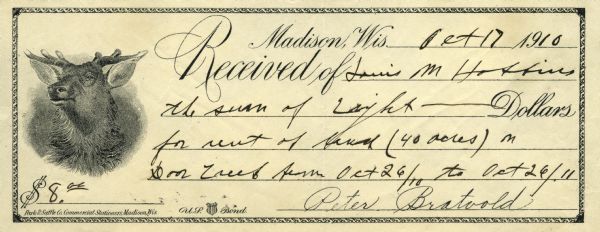 Madison, Wis. Oct 17 1910
Received of Louis M Hobbins
the sum of Eight Dollars
for rent of land (40 acres) on
Door Creek from Oct 26/10 to Oct 26/11
$8.00 Peter Bratvold
Park & Suttle Co. Commercial Stationers, Madison, Wis. U.S. Bond.